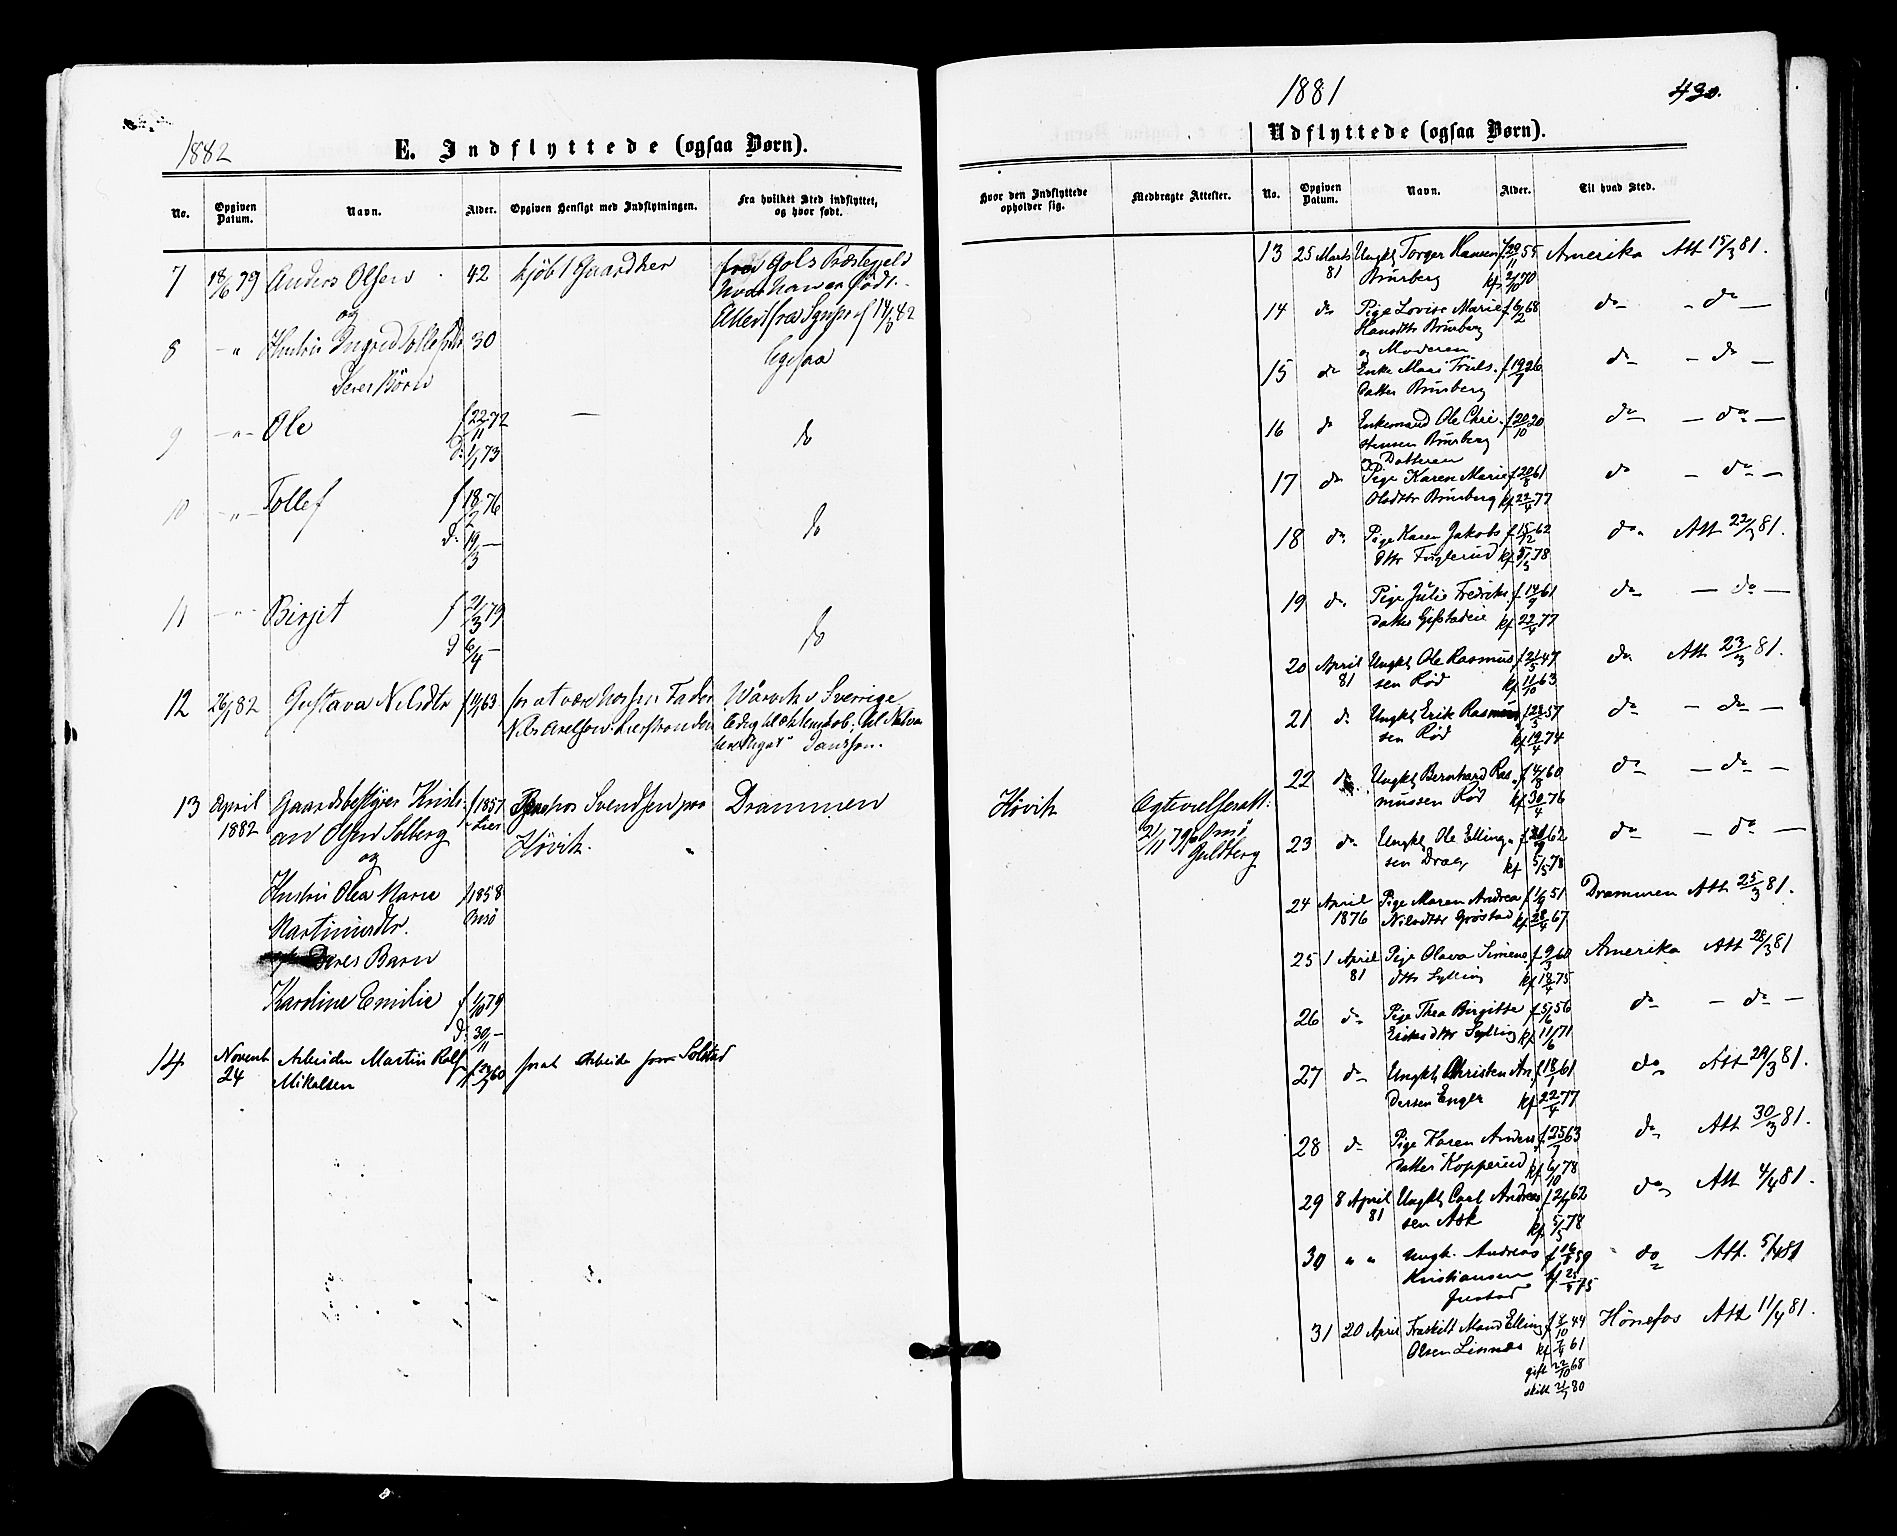 1882
E. Indflyttede (ogsaa Børn).
No. Opgiven Datum. Navn. Alder. Opgiven Hensigt med Indflytningen. Fra hvilket Sted indflyttet, og hvor født.
7 18/6 79 Anders Olsen 42 kjøbt Gaard her fra Gols Præstegjeld
og hvor han er født.
8 -"- Hustru Ingrid Tollefsdtr 30 Ligesaa
Deres Børn
9 -"- Ole f 22/11 72 do
d. 1/1 73
10 -"- Tollef f 18/2 76 do
d. 19/3 -
11 -"- Birgit f 2/3 79 do
d 6/4 -
12 26/1 82 Gustava Nilsdtr 63 for at være hos sin Fader Warvik i Sverrige
13 April Gaardsbestyrer Kristi- f 1857 Svendsen paa Drammen
1882 an Olsen Solberg Lier Høvik.
og
Hustru Olea Marie f 1858
Martinusdtr. Onsø
Deres Barn
Karoline Emilie f 79
d. 30/11 -
14 Novemb Arbeider Martin Rolf f 60 for at arbeide Solstad
24 Mikalsen
1881 430.
Udflyttede (ogsaa Børn).
Hvor den Indflyttede opholder sig. Medbragte Attester. No. Opgiven Datum. Navn. Alder. Til hvad Sted.
Høvik
Guldberg
13 25 Marts Ungk. Torger Hansen f 29/11 55 Amerika Att 15/3 81.
81 Brurberg kf 2/10 70
14 do Pige Lovise Marie f 6/2 68 do - do -
Hansdtr Brurberg
og Moderen
15 do Enke Mari Truls- f 19/9 26 do - do -
datter Brurberg
16 do Enkemand Ole Chri- f 20/10 20 do - do -
stensen Brurberg
og Datteren
17 do Pige Karen Marie f 20/8 61 do - do -
Olsdtr Brurberg kf 22/4 77
18 do Pige Karen Jakobs f 15/12 62 do Att 22/3 81.
dtr Fuglerud kf 5/5 78
19 do Pige Julie Fredriks- f 14/9 61 do - do -
datter Gifstadeie kf 22/4 77
20 April Ungk. Ole Rasmus f 21/5 47 do Att 23/3 81.
81 sen Rød kf 11/10 63
21 do Ungk. Erik Rasmus f 28/3 57 do - do -
sen Rød kf 19/4 74
22 do Ungk. Bernhard Ras- f 4/8 60 do - do -
mussen Rød kf 30/4 76
23 do Ungk. Ole Elling- 62 do - do -
sen Drag kf 5/5 78
24 April Pige Maren Andrea 51 Drammen Att 25/3 81.
1876 Nilsdtr Grøstad kf 28/4 67
25 1 April Pige Olava Simens- f 9/3 60 Amerika Att 28/3 81
81 dtr Sylling kf 18/4 75
26 do Pige Thea Birgitte f 5/6 56 do - do -
Eriksdtr Sylling kf 11/6 71
27 do Ungk. Christen An- f 18/1 61 do Att 29/3 81.
dersen Enger kf 22/4 77
28 do Pige Karen Anders- f 25/7 63 do Att 30/3 81.
datter Kopperud kf 6/10 78
29 8 April Ungk. Carl Andrea- 62 do Att 4/4 81.
81 sen Ask kf 5/5 78
30 " " Ungk. Andreas f 16/8 59 do Att. 5/4 81
Kristiansen kf 25/4 75
31 20 April Fraskilt Mand Elling f 5/10 44 Hønefos Att 11/4 81.
Olsen Linnes kf 7/4 61
gift 22/10 68
skilt 80